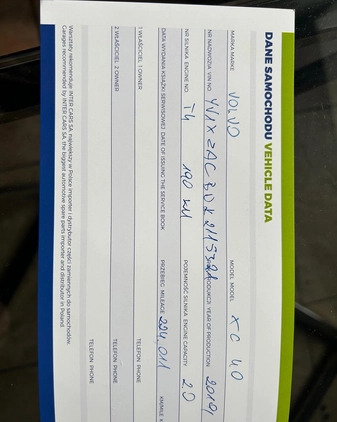 DANE SAMOCHODU VEHICLE DATA
MARKA MARKE VOLVO MODEL MODEL XC 40
NR NADWOZIA VIN NO. PRODUKCJI YEAR OF PRODUCTION 2019
NR SILNIKA ENGINE NO. T4 190 KM POJEMNOŚĆ SILNIKA ENGINE CAPACITY 2.0
DATA WYDANIA KSIĄŻKI SERWISOWEJ DATE OF ISSUING THE SERVICE BOOK PRZEBIEG MILEAGE 294.011 KM/MILE
1 WŁAŚCICIEL 1 OWNER TELEFON PHONE
2 WŁAŚCICIEL 2 OWNER TELEFON PHONE
Warsztaty rekomenduje INTER CARS SA, największy w Polsce importer i dystrybutor części zamiennych do samochodów.
Garages recommended by INTER CARS SA, the biggest automotive spare parts importer and distributor in Poland.